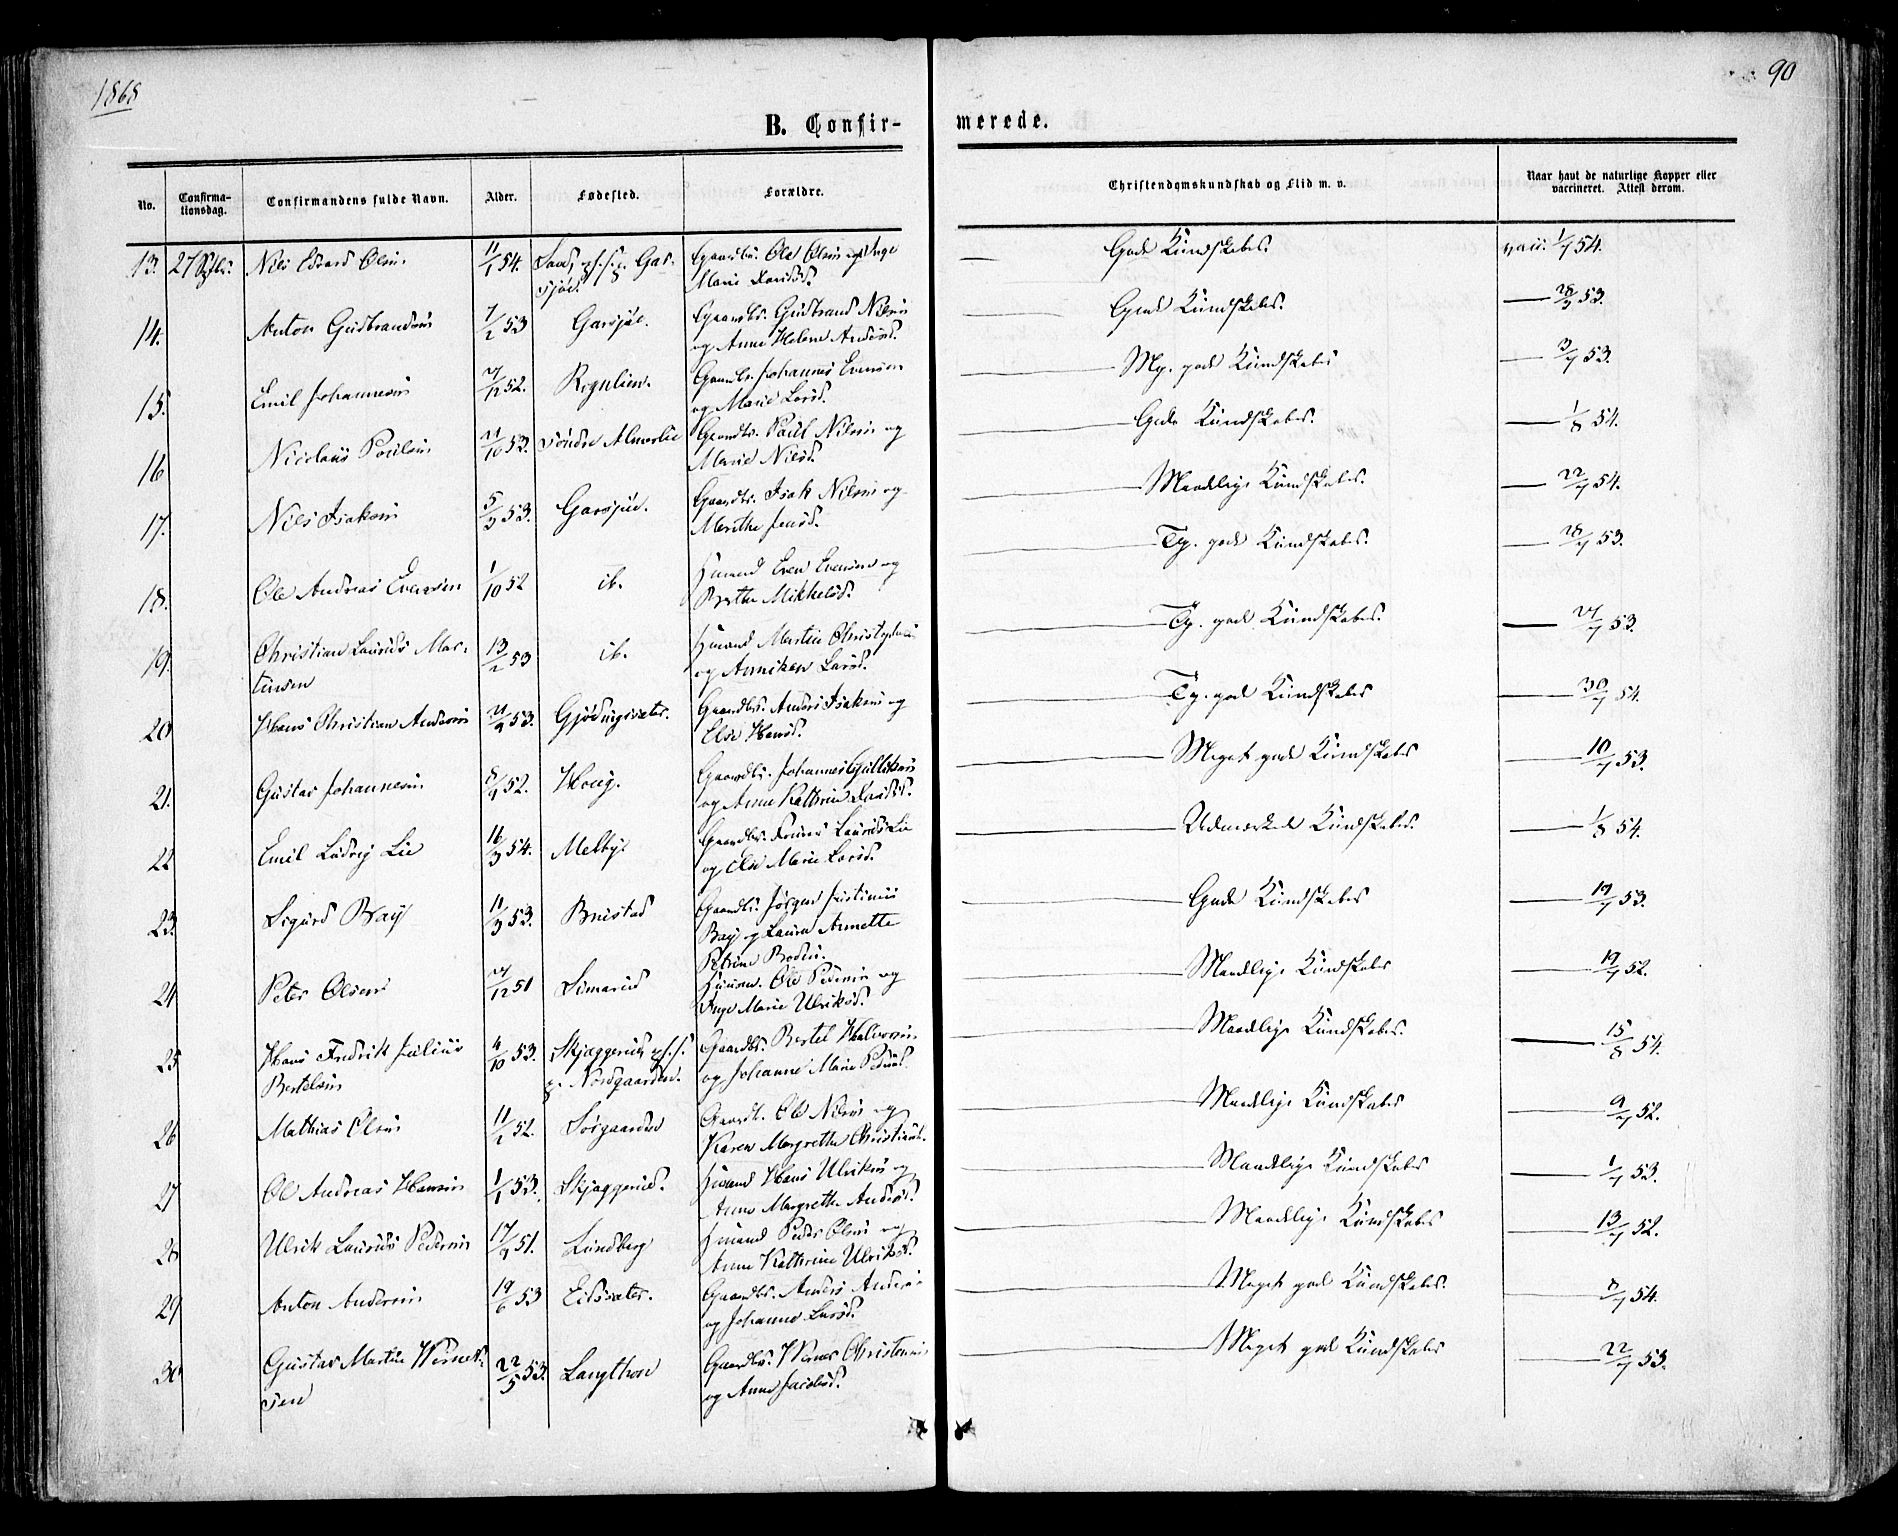 1868
90
B. Confir-
merede.
No.
Confirma-
tionsdag.
Confirmandens fulde Navn.
Alder.
Fødested.
Forældre.
Christendomskundskab og Flid m. v.
Naar havt de naturlige Kopper eller
vaccineret. Attest derom.
13. 27 Septbr. Nils Edvard Olsen 11/1 54. Gaardbr. Ole Olsen og Inge
Marie Davidsd. Gode Kundskaber. vacc: 1/7 54.
14. Anton Gudbrandsen 7/2 53 Garsjøe. Gaardbr. Gudbrand Nilsen
og Anne Helene Andersd. Gode Kundskaber. 53.
15. Emil Johannesen 52. Rognlien. Gaardbr. Johannes Evensen
og Marie Larsd. Mg. gode Kundskaber 3/7 53.
16 Nicolaus Poulsen 53. Søndre Almerlie Gaardbr. Paul Nilsen og
Marie Nilsd. Gode Kundskaber. 1/8 54.
17. Nils Isaksen 53. Garsjøe. Gaardbr. Isak Nilsen og
Marthe Jensd. Maadelige Kundskaber. 22/7 54.
18. Ole Andreas Evensen 1/10 52 ib. Huusmd Even Evensen og
Berthe Mikkelsd. Tg. gode Kundskaber. 28/7 53.
19. Christian Laurids Mar-
tinsen 13/2 53 ib. Martin
og Anniken Larsd. Tg. gode Kundskaber. 53.
20 Hans Christian Andersen 53. Gjødingsæter. Gaardbr. Anders Isaksen og
Else Hansd. Tg. gode Kundskaber 30/7 54.
21. Gustav Johannesen 52. Houg. Gaardbr. Johannes Gulliksen
og Anne Kathrine Davidsd. Meget gode Kundskaber 10/7 53.
22 Emil Ludvig Lie 16/3 54. Melby. Gaardbr. Laurids Lie
og Else Marie Larsd. Udmærkede Kundskaber. 1/8 54.
23. Sigurd Bay 11/3 53. Bristad Gaardbr. Jørgen Justinus
Bay og Laura Annette
Petrine Gode Kundskaber 19/7 53.
24 Peter Olsen 51 Simarud Ole Pedersen og
Inge Marie Ulriksd. Maadelige Kundskaber 19/7 52.
25 Hans Fredrik Julius
Bertelsen 4/10 53. Skjæggerud,
Nordgaarden. Gaardbr. Bertel Halvorsen
og Johanne Marie Pedersd. Maadelige Kundskaber. 15/8 54.
26 Mathias Olsen 52. Sørgaarden Gaardb. Ole Nilsen og
Karen Margrethe Christiansd. Maadelige Kundskaber 9/7 52.
27 Ole Andreas Hansen 1/1 53. Skjæggerud. Huusmd Hans Ulriksen og
Anne Margrethe Andersd. Maadelige Kundskaber 1/7 53.
28 Ulrik Laurids Pedersen 51. Lundberg Huusmd Peder Olsen og
Anne Kathrine Ulriksd. Maadelige Kundskaber 13/7 52.
29 Anton Andersen 19/6 53 Eidsæter. Gaardbr. Anders Andersen
og Johanne Larsd. Meget gode Kundskaber. 8/7 54.
30 Gustav Martin Werners-
sen 22/5 53. Langthon Gaardbr. Werner Christensen
og Anne Jacobsd. Meget gode Kundskaber 22/7 53.